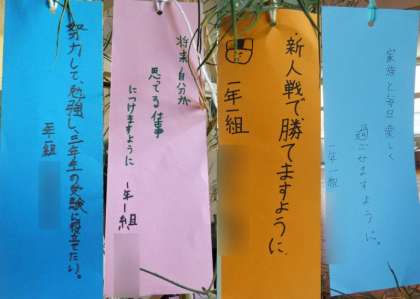 努力して、勉強し、三年生の受験に役立てたい。
一年一組
将来、自分が
思ってる仕事
につけますように
一年一組
新人戦で勝てますように
一年一組
家族と毎日楽しく
過ごせますように。
一年一組